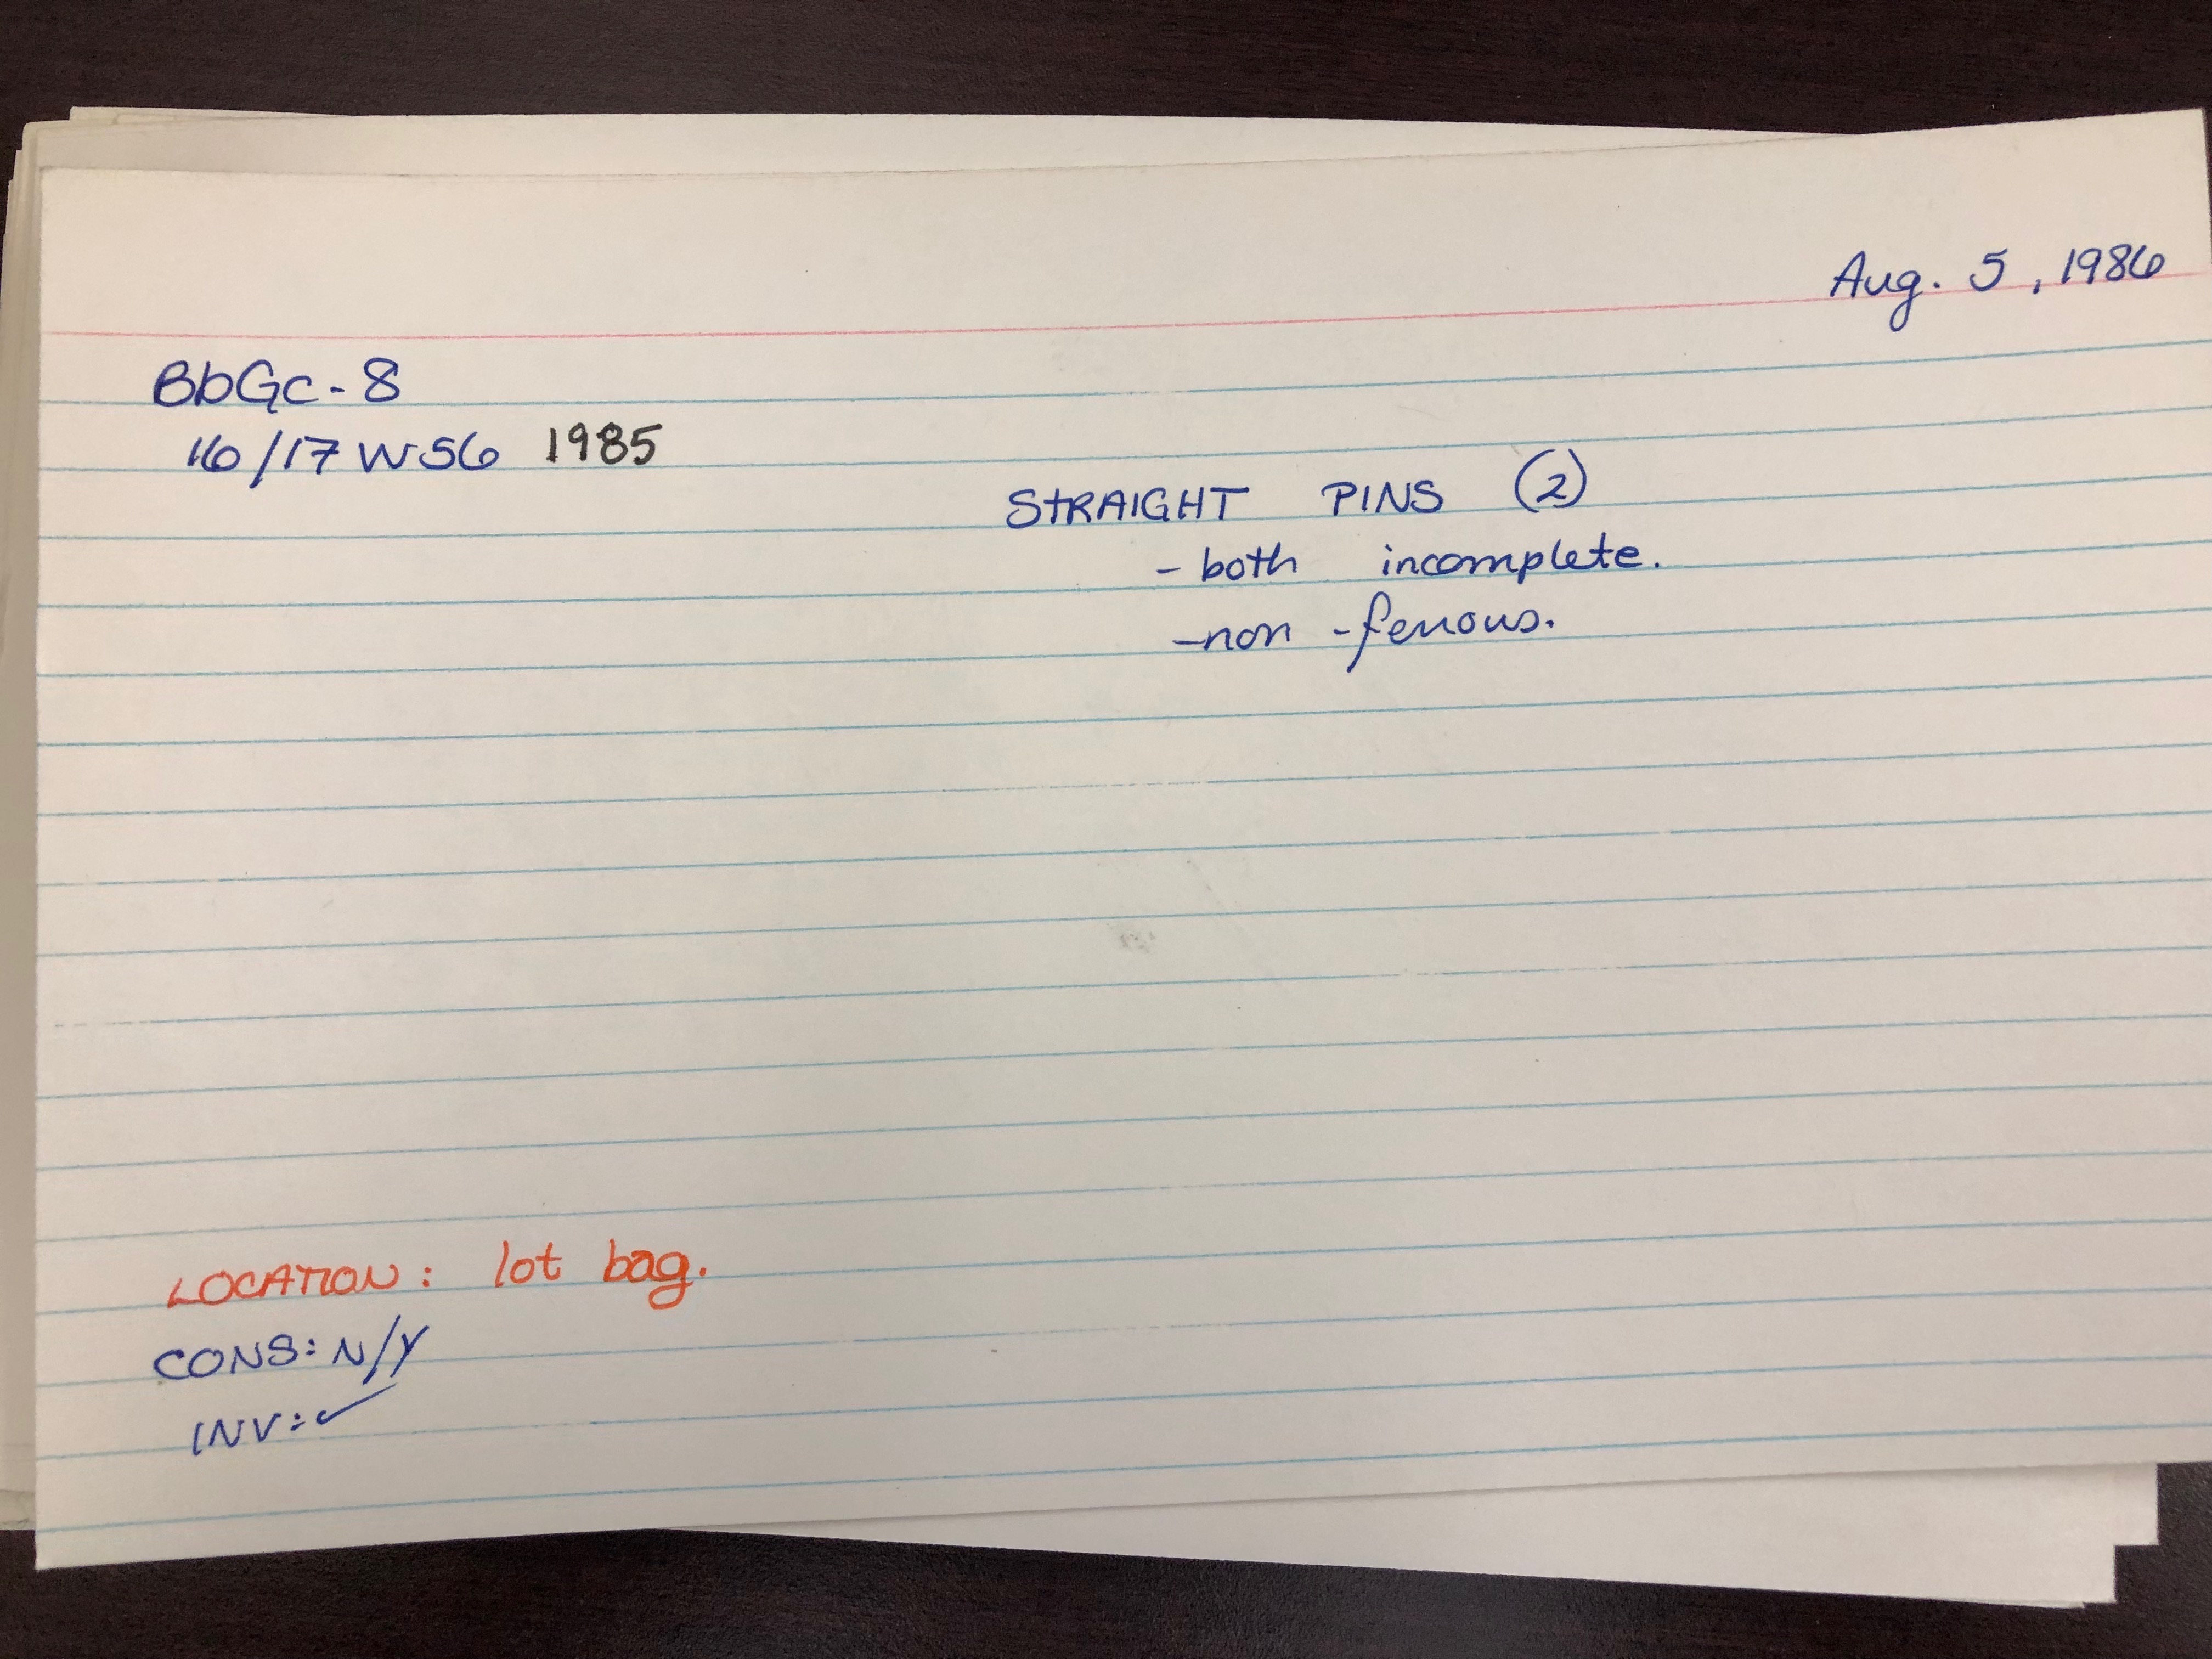 Aug. 5, 1986
BbGc-8
16/17 W56 1985
STRAIGHT PINS (2)
- both incomplete.
- non-ferrous.
LOCATION: lot bag.
CONS: N/Y
INV: ✓